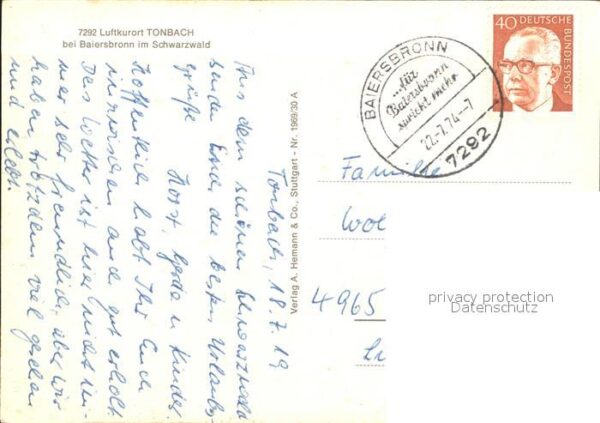 7292 Luftkurort TONBACH
bei Baiersbronn im Schwarzwald
Tonbach, 18.7.19
Aus dem schönen Schwarzwald
senden Euch die besten Urlaubs-
grüße Horst, Gerda u. Kinder.
Hoffentlich habt Ihr Euch
inzwischen auch gut erholt.
Das Wetter ist hier nicht im-
mer sehr freundlich, aber wir
haben trotzdem viel gesehen
und erlebt.
Verlag A. Hemann & Co., Stuttgart - Nr. 1969/30 A
BAIERSBRONN
...für
Baiersbronn
spricht mehr
22.-7.74-7
7292
40 DEUTSCHE
BUNDESPOST
Familie
4965
privacy protection
Datenschutz